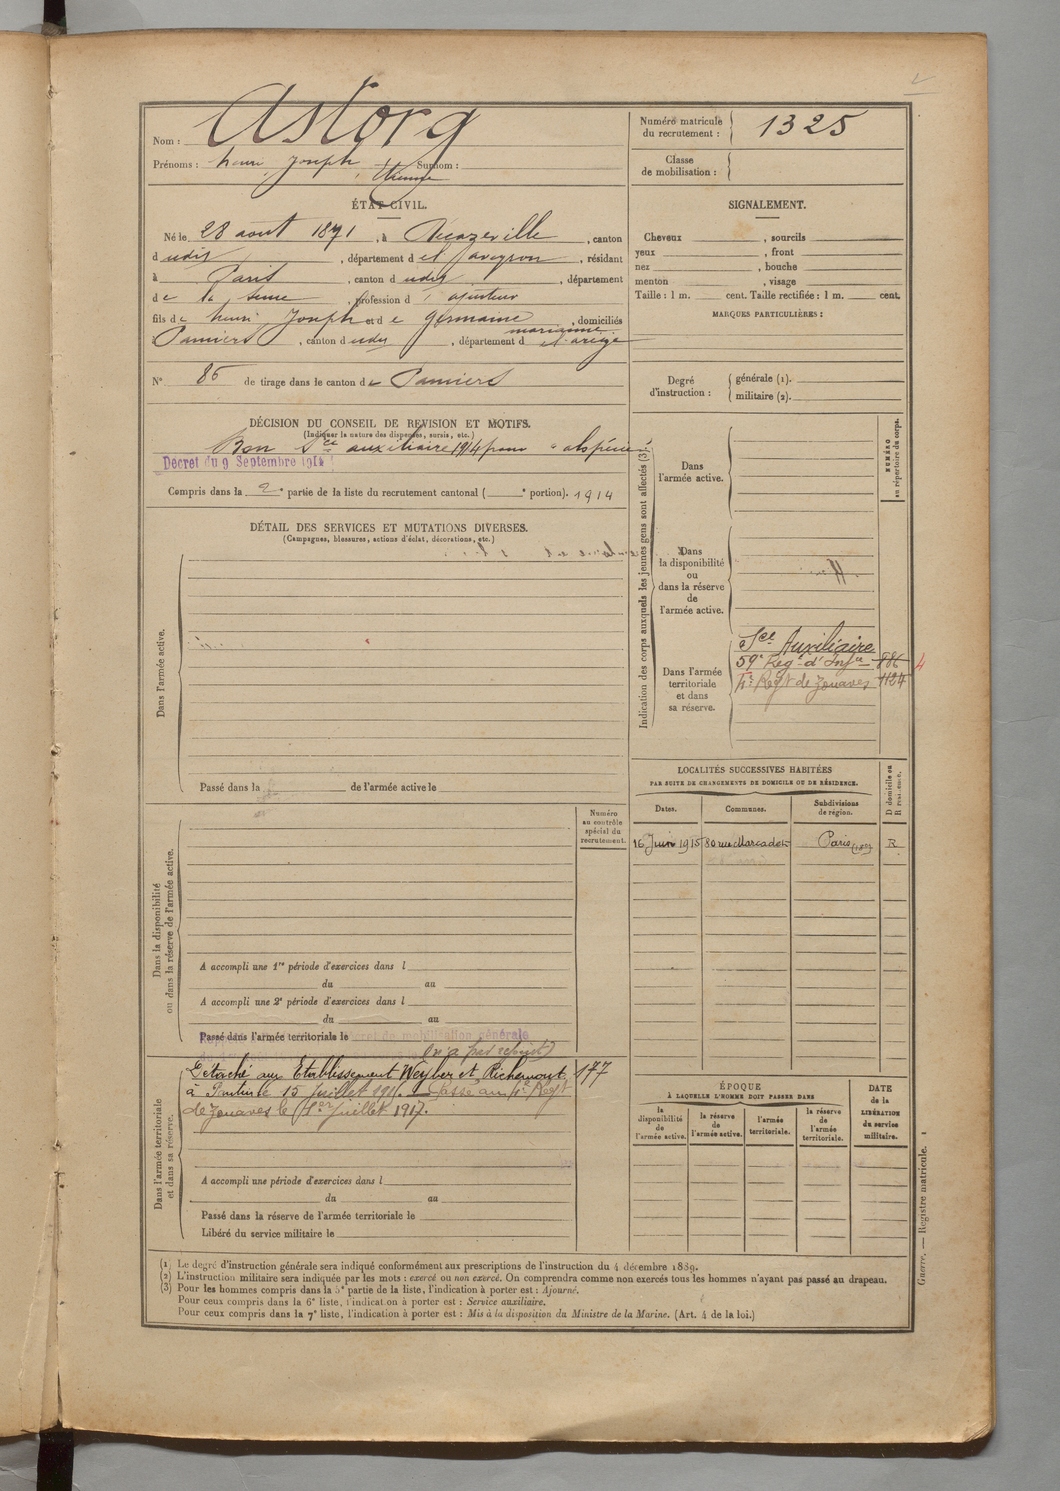 Nom : Astorg
Prénoms : henri Joseph Etienne Surnom :
Numéro matricule du recrutement : 1325
Classe de mobilisation :
ÉTAT CIVIL.
Né le 28 août 1871, à Decazeville, canton
d udit, département d el aveyron, résidant
à Paris, canton d udit, département
de la Seine, profession d' ajusteur
fils de henri Joseph et de Germaine marianne, domiciliés
à Pamiers, canton d udit, département d el ariège
N° 86 de tirage dans le canton de Pamiers
SIGNALEMENT.
Cheveux , sourcils
yeux , front
nez , bouche
menton , visage
Taille : 1 m. cent. Taille rectifiée : 1 m. cent.
MARQUES PARTICULIÈRES :
Degré d'instruction : générale (1).
militaire (2).
DÉCISION DU CONSEIL DE REVISION ET MOTIFS.
(Indiquer la nature des dispenses, sursis, etc.)
Bon Sce auxiliaire 1914 pour
Decret du 9 Septembre 1914
Compris dans la 2e partie de la liste du recrutement cantonal ( e portion). 1914
DÉTAIL DES SERVICES ET MUTATIONS DIVERSES.
(Campagnes, blessures, actions d'éclat, décorations, etc.)
Dans l'armée active.
Passé dans la de l'armée active le
Indication des corps auxquels les jeunes gens sont affectés (3)
NUMÉRO au répertoire du corps.
Dans l'armée active.
Dans la disponibilité ou dans la réserve de l'armée active.
Dans l'armée territoriale et dans sa réserve.
Sce Auxiliaire
59e Régt d'Infie 886
4e Régt de Zouaves 1124
4
LOCALITÉS SUCCESSIVES HABITÉES
PAR SUITE DE CHANGEMENTS DE DOMICILE OU DE RÉSIDENCE.
Dates. Communes. Subdivisions de région. D domicile ou R résidence.
16 Juin 1915 80 rue Marcadet Paris R
Numéro au contrôle spécial du recrutement.
Dans la disponibilité ou dans la réserve de l'armée active.
A accompli une 1re période d'exercices dans l
du au
A accompli une 2e période d'exercices dans l
du au
Passé dans l'armée territoriale le
décret de mobilisation générale
(n'a pas rejoint)
Dans l'armée territoriale et dans sa réserve.
Détaché aux Etablissement Weyher et Richemont 177
à Pantin le 15 Juillet 191. Passé au 4e Régt
de Zouaves le 1er Juillet 1917.
A accompli une période d'exercices dans l
du au
Passé dans la réserve de l'armée territoriale le
Libéré du service militaire le
ÉPOQUE
À LAQUELLE L'HOMME DOIT PASSER DANS
la disponibilité de l'armée active. la réserve de l'armée active. l'armée territoriale. la réserve de l'armée territoriale.
DATE de la LIBÉRATION du service militaire.
(1) Le degré d'instruction générale sera indiqué conformément aux prescriptions de l'instruction du 4 décembre 1889.
(2) L'instruction militaire sera indiquée par les mots : exercé ou non exercé. On comprendra comme non exercés tous les hommes n'ayant pas passé au drapeau.
(3) Pour les hommes compris dans la 5e partie de la liste, l'indication à porter est : Ajourné.
Pour ceux compris dans la 6e liste, l'indication à porter est : Service auxiliaire.
Pour ceux compris dans la 7e liste, l'indication à porter est : Mis à la disposition du Ministre de la Marine. (Art. 4 de la loi.)
Guerre. — Registre matricule. 1